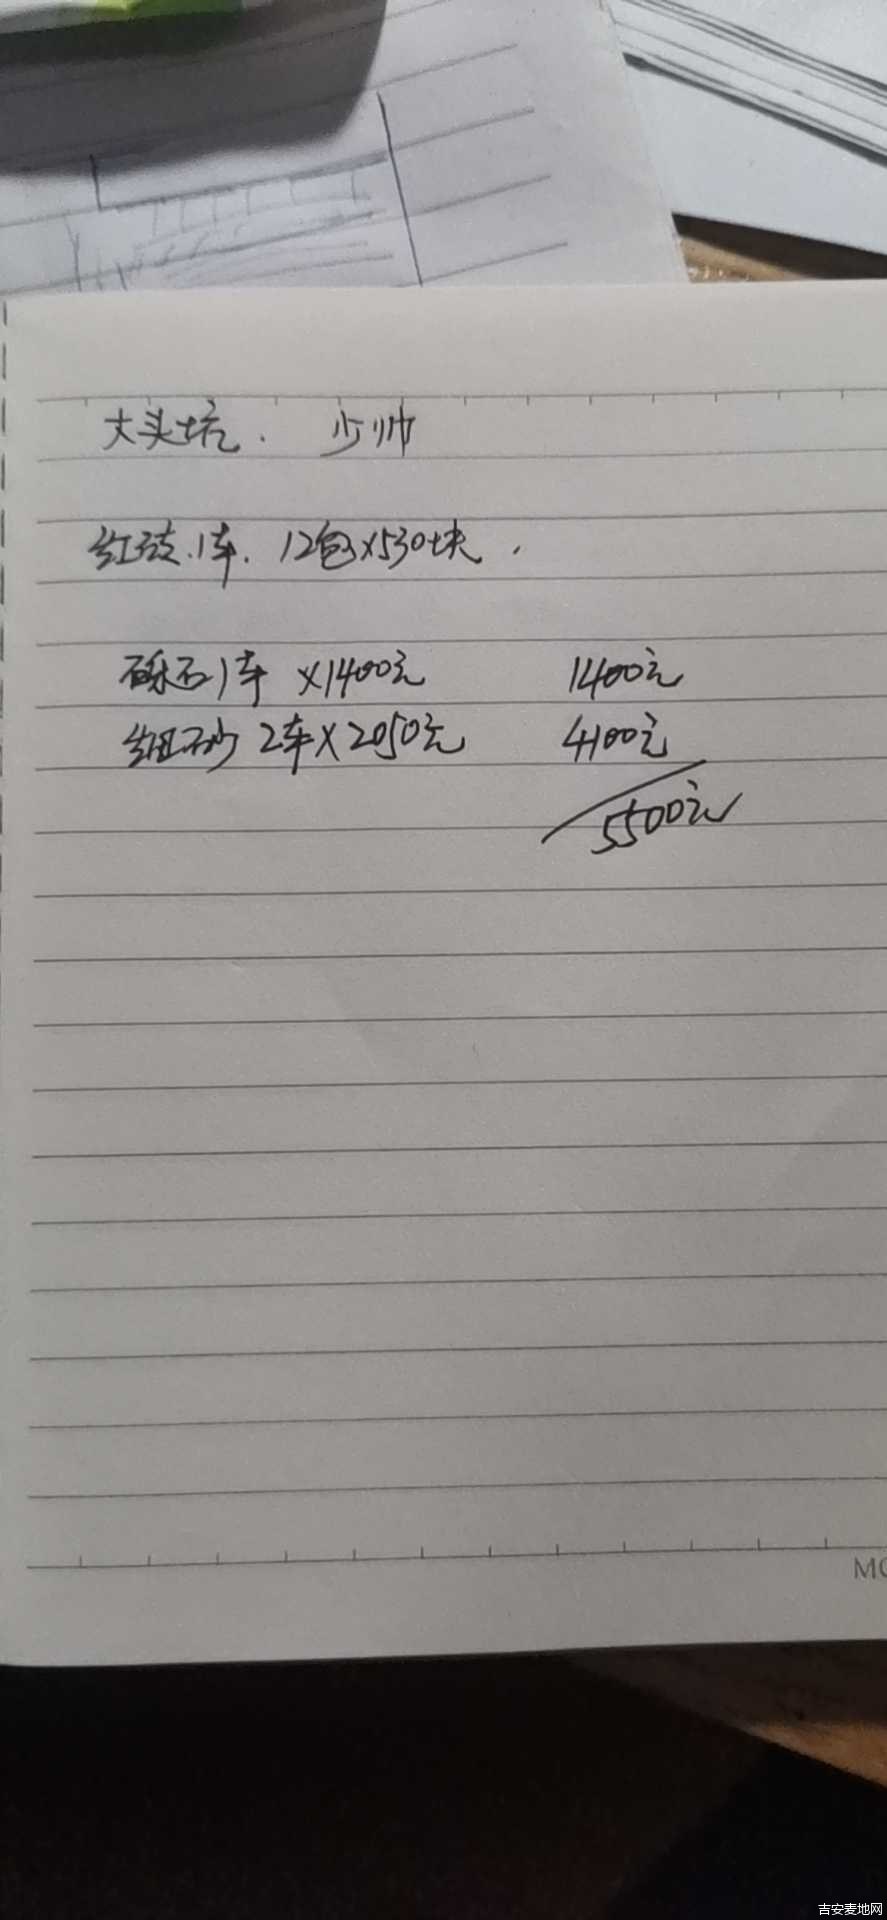 大头坑. 少帅
红砖.1车. 12包×530块.
砾石1车 ×1400元 1400元
细砂 2车×2050元 4100元
5500元
MO
吉安麦地网